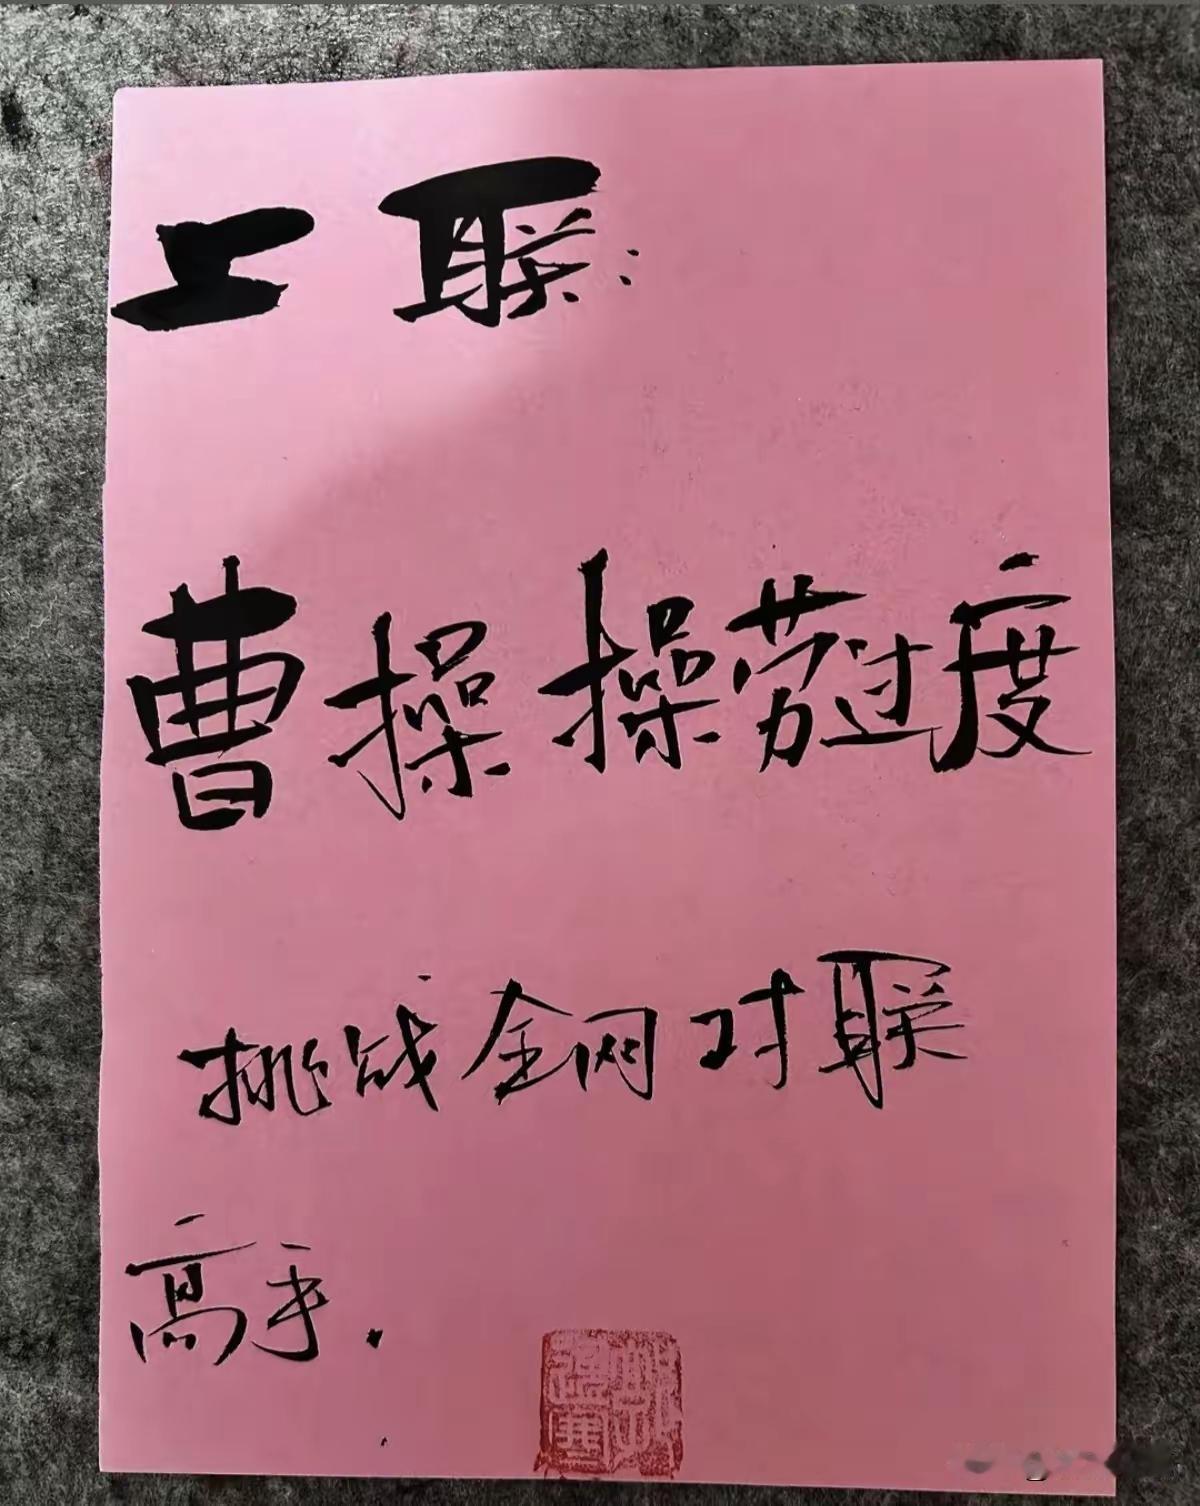 上联:
曹操操劳过度
挑战全网对联
高手.